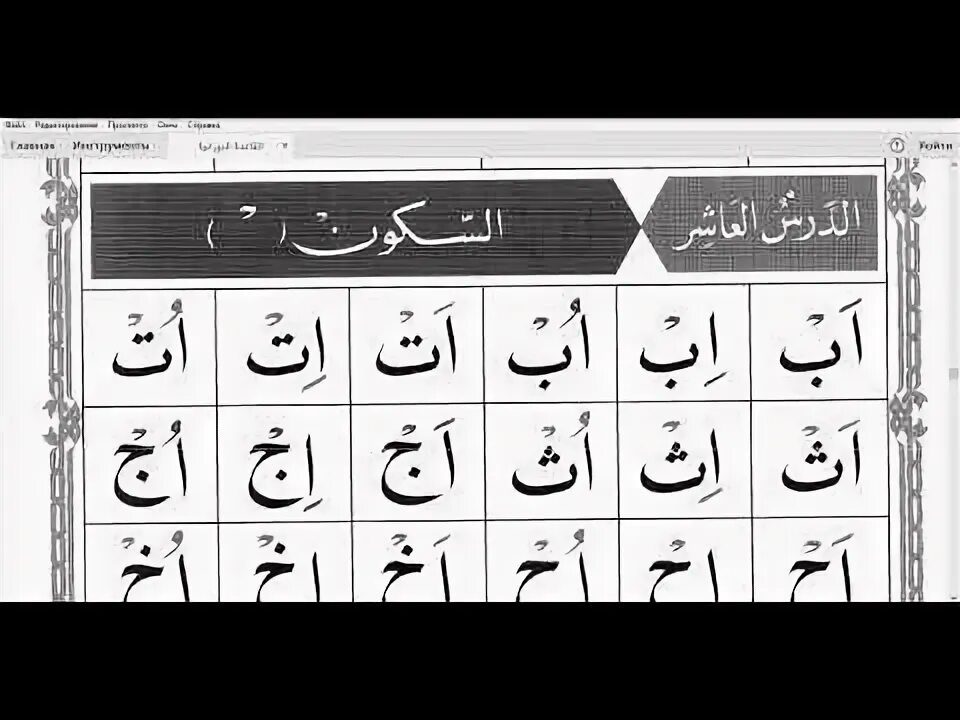 Файл Редактирование Просмотр Окно Справка
Главная Инструменты
Войти
الدَرسُ العَاشِر السّكونْ ( ْ )
اَبْ اِبْ اُبْ اَتْ اِتْ اُتْ
اَثْ اِثْ اُثْ اَجْ اِجْ اُجْ
اَحْ اِحْ اُحْ اَخْ اِخْ اُخْ